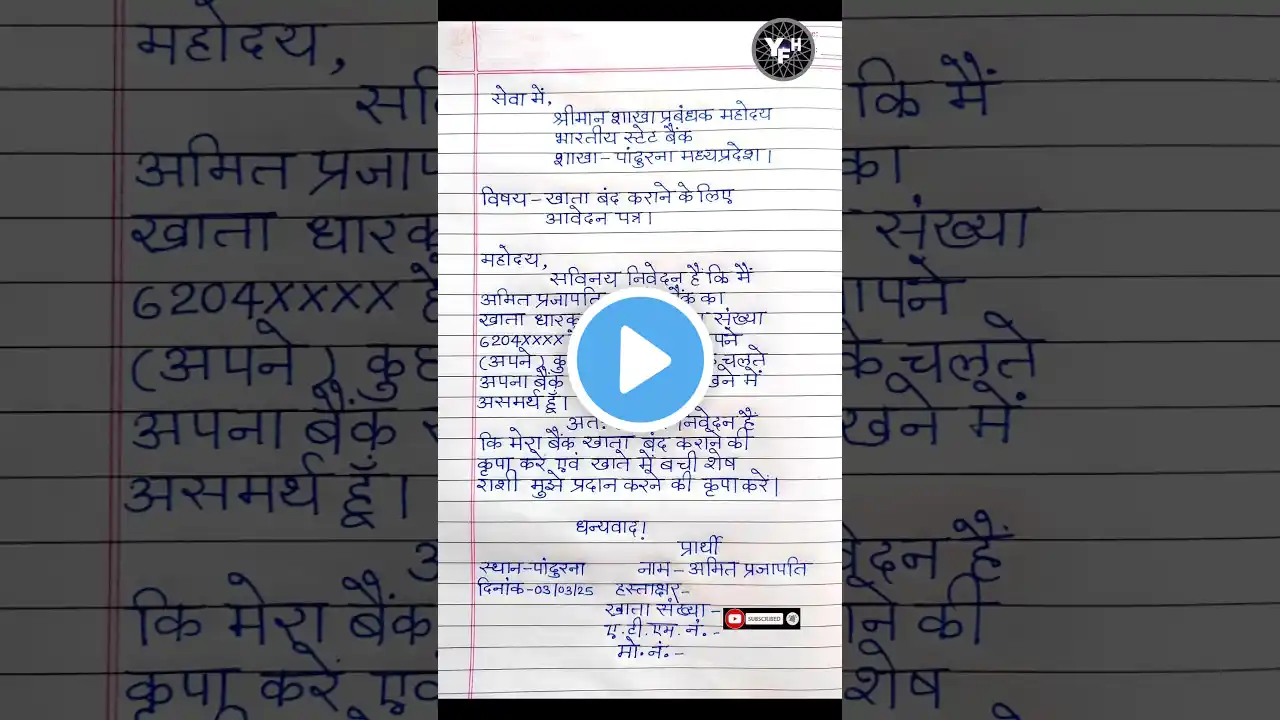 YFH
सेवा में,
श्रीमान शाखा प्रबंधक महोदय
भारतीय स्टेट बैंक
शाखा – पांढुरना मध्यप्रदेश।
विषय – खाता बंद कराने के लिए
आवेदन पत्र।
महोदय,
सविनय निवेदन है कि मैं
अमित प्रजापति बैंक का
खाता धारक संख्या
6204XXXX
(अपने) चलते
अपना बैंक में
असमर्थ हूँ।
अतः निवेदन है
कि मेरा बैंक खाता बंद कराने की
कृपा करें एवं खाते में बची शेष
राशी मुझे प्रदान करने की कृपा करें।
धन्यवाद!
प्रार्थी
स्थान – पांढुरना नाम – अमित प्रजापति
दिनांक - 03/03/25 हस्ताक्षर –
खाता संख्या –
SUBSCRIBED
ए.टी.एम. नं. –
मो. नं. –
महोदय,
कि मैं
अमित
का
खाता धारक
संख्या
6204XXXX
(अपने)
के चलते
अपना बैंक
में
असमर्थ हूँ।
कि मेरा बैंक
की
कृपा करें
शेष